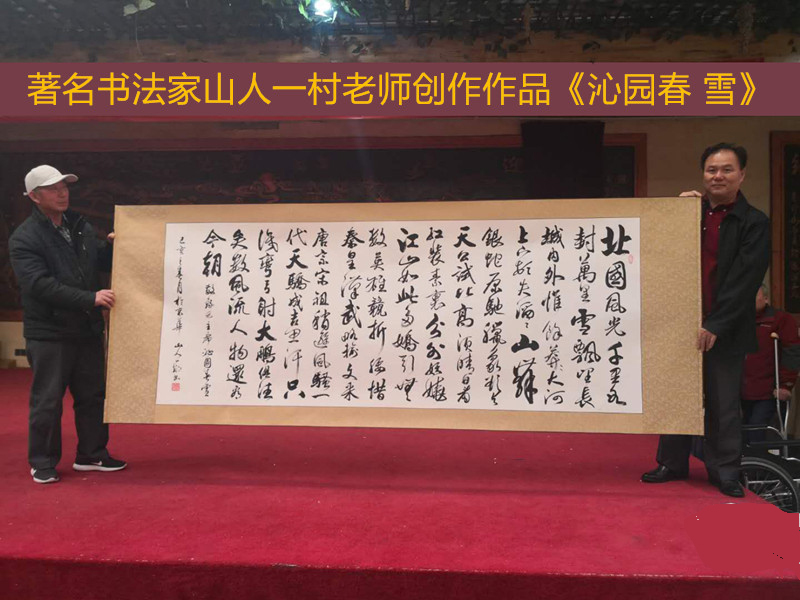 著名书法家山人一村老师创作作品《沁园春 雪》
北國風光千里冰
封萬里雪飄望長
城内外惟餘莽大河
上下頓失滔〻山舞
銀蛇原馳臘象欲与
天公試比高須晴日看
紅裝素裹分外妖嬈
江山如此多嬌引無
數英雄競折腰惜
秦皇漢武略輸文采
唐宗宋祖稍遜風騷一
代天驕成吉思汗只
識彎弓射大鵰俱往
矣數風流人物還看
今朝 敬錄毛主席沁園春雪
山人一村書